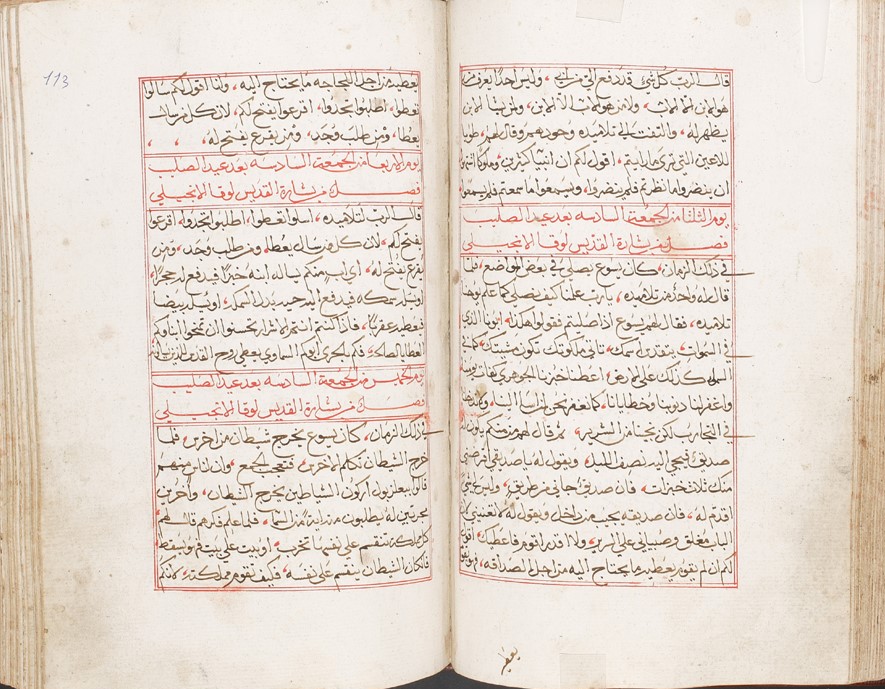 قال الرب كل شي قد دفع الي من ابي، وليس احدًا يعرف من
هو الابن الا الاب، ولا من هو الاب الا الابن، ولمن يشا الابن
يظهر له، والتفت الي تلاميذه وحدهم وقال لهم، طوبا
للاعين التي ترى ما رايتم، اقول لكم ان انبيا كثيرين، وملوكًا اشتهوا
ان ينضروا ما نظرتم فلم ينضروا، ويسمعوا ما سمعتم فلم يسمعوا
يوم الثلثا من الجمعة السادسه بعد عيد الصليب
فصل من بشارة القديس لوقا الانجيلي
في ذلك الزمان، كان يسوع يصلي في بعض المواضع، فلما
قال له واحد من تلاميذه، يارب علمنا كيف نصلي كما علم يوحنا
تلاميذه، فقال لهم يسوع اذا صليتم فقولوا هكذا، ابونا الذي
في السموات، يتقدس اسمك، تاتي ملكوتك، تكون مشيتك، كما في
السما كذلك على الارض، اعطنا خبزنا الجوهري كفات يومنا
واغفر لنا ذنوبنا وخطايانا، كما نغفر نحن لمن اسا الينا، ولا تدخلنا
في التجارب لكن نجنا من الشرير، ثم قال لهم من منكم يكون له
صديق فيجي اليه نصف الليل، ويقول له يا صديقي اقرضني
منك ثلاث خبزات، فان صديق جاني من طريق، وليس لي شيًا
اقدم له، فان صديقه يجيب من داخل ويقول له لا تعنيني
الباب مغلق وصبياني علي السرير، ولا اقدر اقوم فاعطيك، اقول
لكم ان لم يقوم يعطيه ما يحتاج اليه من اجل الصداقه،
يعطيه
113
يعطيه من اجل اللجاجه ما يحتاج اليه، وانا اقول لكم سالوا
تعطوا، اطلبوا تجدوا، اقرعوا يفتح لكم، لان كل من سال
يعطا، ومن طلب وجد، ومن يقرع يفتح له،
يوم الاربعا من الجمعة السادسه بعد عيد الصليب
فصل من بشارة القديس لوقا الانجيلي
قال الرب لتلاميذه، اسلوا تعطوا، اطلبوا تجدوا، اقرعوا
يفتح لكم، لان كل من سال يعطا، ومن طلب وجد، ومن
يقرع يفتح له، اي اب منكم يساله ابنه خبزًا فيدفع له حجرًا،
او يسله سمكه فيدفع اليه حيه بدل السمك، او يسله بيضا
فيعطيه عقربًا، فاذا كنتم انتم الاشرار تحسنوا ان تمنحوا ابناوكم
العطايا الصالحه، فكم بالحري ابوكم السماوي يعطي روح القدس للذين
يوم الخميس من الجمعة السادسه بعد عيد الصليب
فصل من بشارة القديس لوقا الانجيلي
في ذلك الزمان، كان يسوع يخرج شيطان من اخرس، فلما
خرج الشيطان تكلم الاخرس، فتعجب الجمع، وان ناس منهم
قالوا ببعلزبول اركون الشياطين يخرج الشيطان، واخرين
مجربين له يطلبون منه اية من السما، فلما علم فكرهم قال لهم
كل مملكه تنقسم على نفسها تخرب، او بيت على بيت فهو يسقط
فان كان الشيطان ينقسم على نفسه، فكيف تقوم مملكته، لانكم